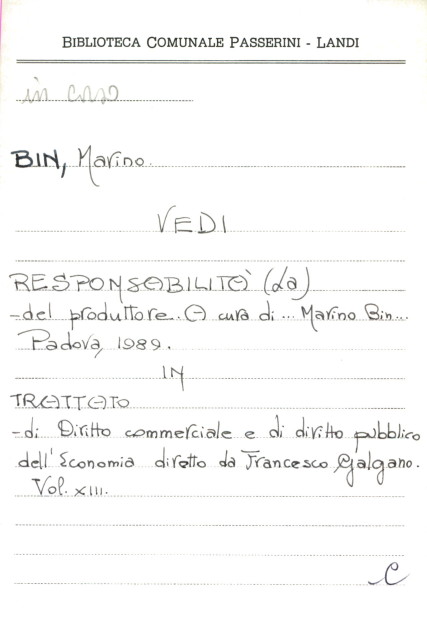 BIBLIOTECA COMUNALE PASSERINI - LANDI
in corso
BIN, Marino.
VEDI
RESPONSABILITÀ (La)
-del produttore. A cura di ... Marino Bin...
Padova, 1989.
IN
TRATTATO
-di Diritto commerciale e di diritto pubblico
dell'Economia diretto da Francesco Galgano.
Vol. XIII.
C